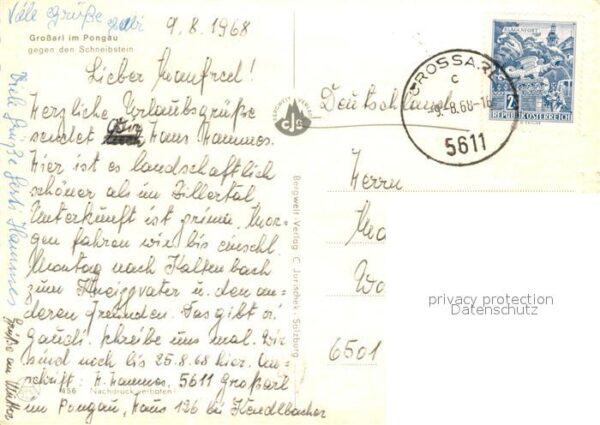 Viele Grüße
9.8.1968
Großarl im Pongau
gegen den Schneibstein
Lieber Manfred!
Herzliche Urlaubsgrüße
sendet Hans Hammes.
Hier ist es landschaftlich
schöner als im Zillertal
Unterkunft ist prima. Mor-
gen fahren wir bis einschl.
Montag nach Kaltenbach
zum Kneippvater u. den an-
deren Freunden. Das gibt a
Gaudi. Schreibe uns mal. Wir
sind noch bis 25.8.68 hier. An-
schrift: H. Hammes, 5611 Großarl
456 Nachdruck verboten!
im Pongau, Haus 126 bei Kendlbacher
Viele Grüße Gerti Hammes
Grüße an Mutter
BERGWELT VERLAG
cJs
Bergwelt-Verlag C. Jurischek, Salzburg
GROSSARL
c
-9.-8.68-16
5611
KLAGENFURT
2
REPUBLIK ÖSTERREICH
Deutschland
Herrn
Ma
Wo
6501
privacy protection
Datenschutz